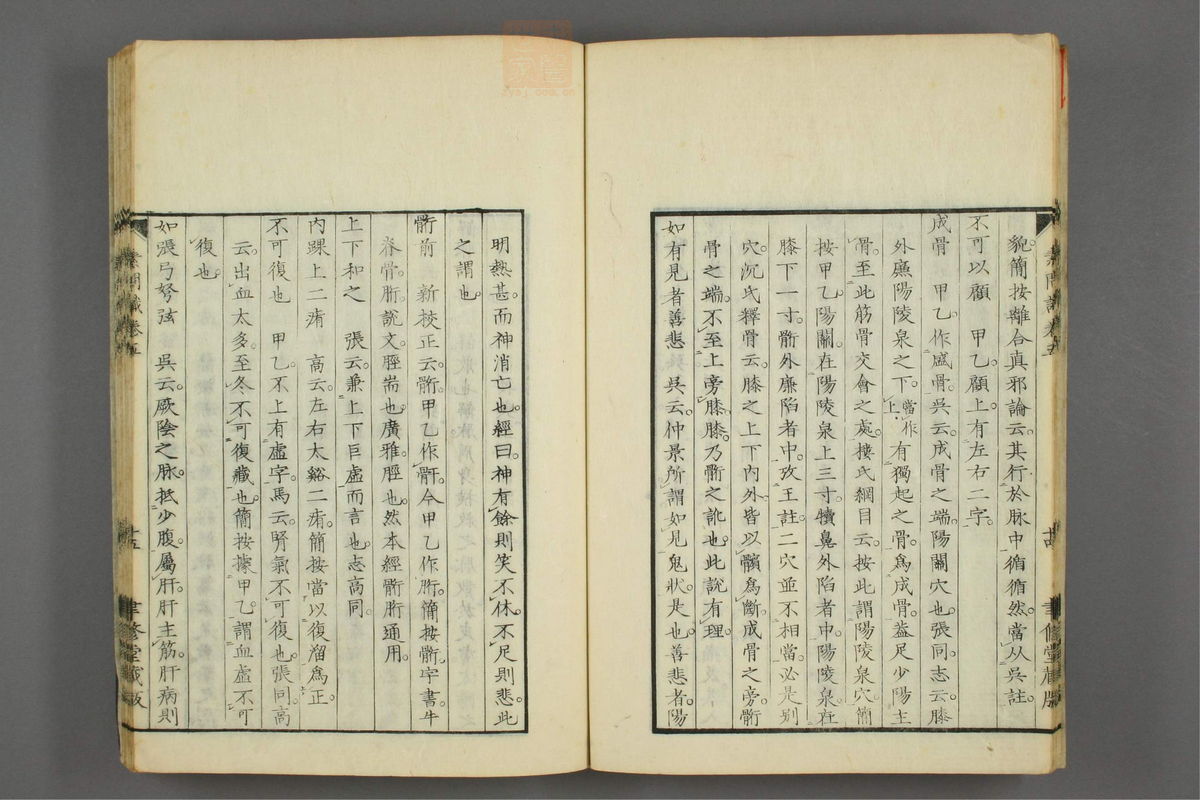 貌。簡按離合真邪論云。其行於脉中循循然。當从吳註。
不可以顧　甲乙。顧上。有左右二字。
成骨　甲乙。作盛骨。吳云。成骨之端。陽關穴也。張同。志云。膝
外廉陽陵泉之下。當作上有獨起之骨。爲成骨。蓋足少陽主
骨。至此筋骨交會之處。樓氏綱目云。按此謂陽陵泉穴。簡
按甲乙。陽關。在陽陵泉上三寸。犢鼻外陷者中。陽陵泉。在
膝下一寸。䯒外廉陷者中。攷王註。二穴並不相當。必是別
穴。沉氏釋骨云。膝之上下內外。皆以髕爲斷。成骨之旁。䯒
骨之端。不至上旁膝。膝乃䯒之訛也。此說有理。
如有見者善悲　吳云。仲景所謂如見鬼狀是也。善悲者。陽
素問識卷五
書修堂藏版
明熱甚。而神消亡也。經曰。神有餘則笑不休。不足則悲。此
之謂也。
䯒前　新校正云。䯒。甲乙作骭。今甲乙作胻。簡按䯒。字書。牛
脊骨。胻。說文。脛耑也。廣雅。脛也。然本經䯒胻通用。
上下和之　張云。兼上下巨虛而言也。志高同。
內踝上二痏　高云。左右太谿二痏。簡按當以復溜爲正。
不可復也　甲乙。不上有虛字。馬云。腎氣不可復也。張同。高
云。出血太多。至冬不可復藏也。簡按據甲乙。謂血虛不可
復也。
如張弓弩弦　吳云。厥陰之脉。抵少腹。屬肝。肝主筋。肝病則
素問識卷五
十五
聿修堂藏版